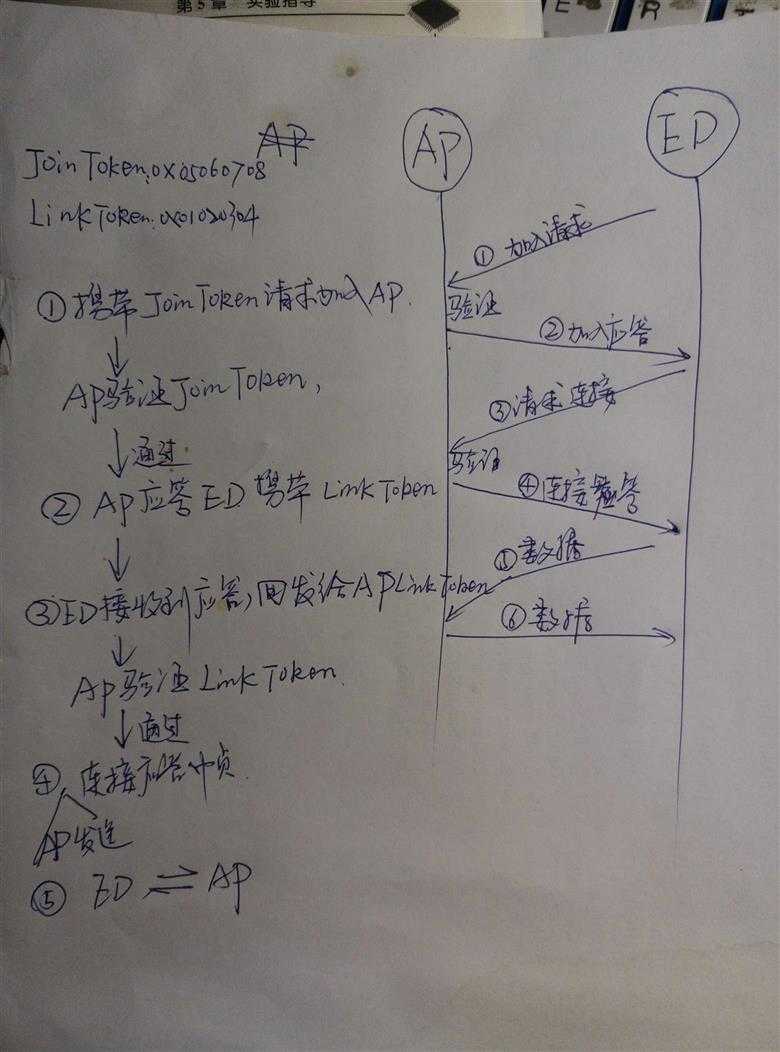 第5章 实验指导
E R
AP
Join Token:0x05060708
Link Token:0x01020304
① 携带 Join Token 请求加入AP.
AP验证Join Token,
通过
② AP应答ED 携带 Link Token
③ED接收到应答,回发给AP Link Token
AP验证 Link Token.
通过
④ 连接应答帧
AP发送
⑤ ED ⇌ AP
AP
ED
① 加入请求
验证
②加入应答
③请求连接
验证
④连接应答
⑤数据
⑥数据